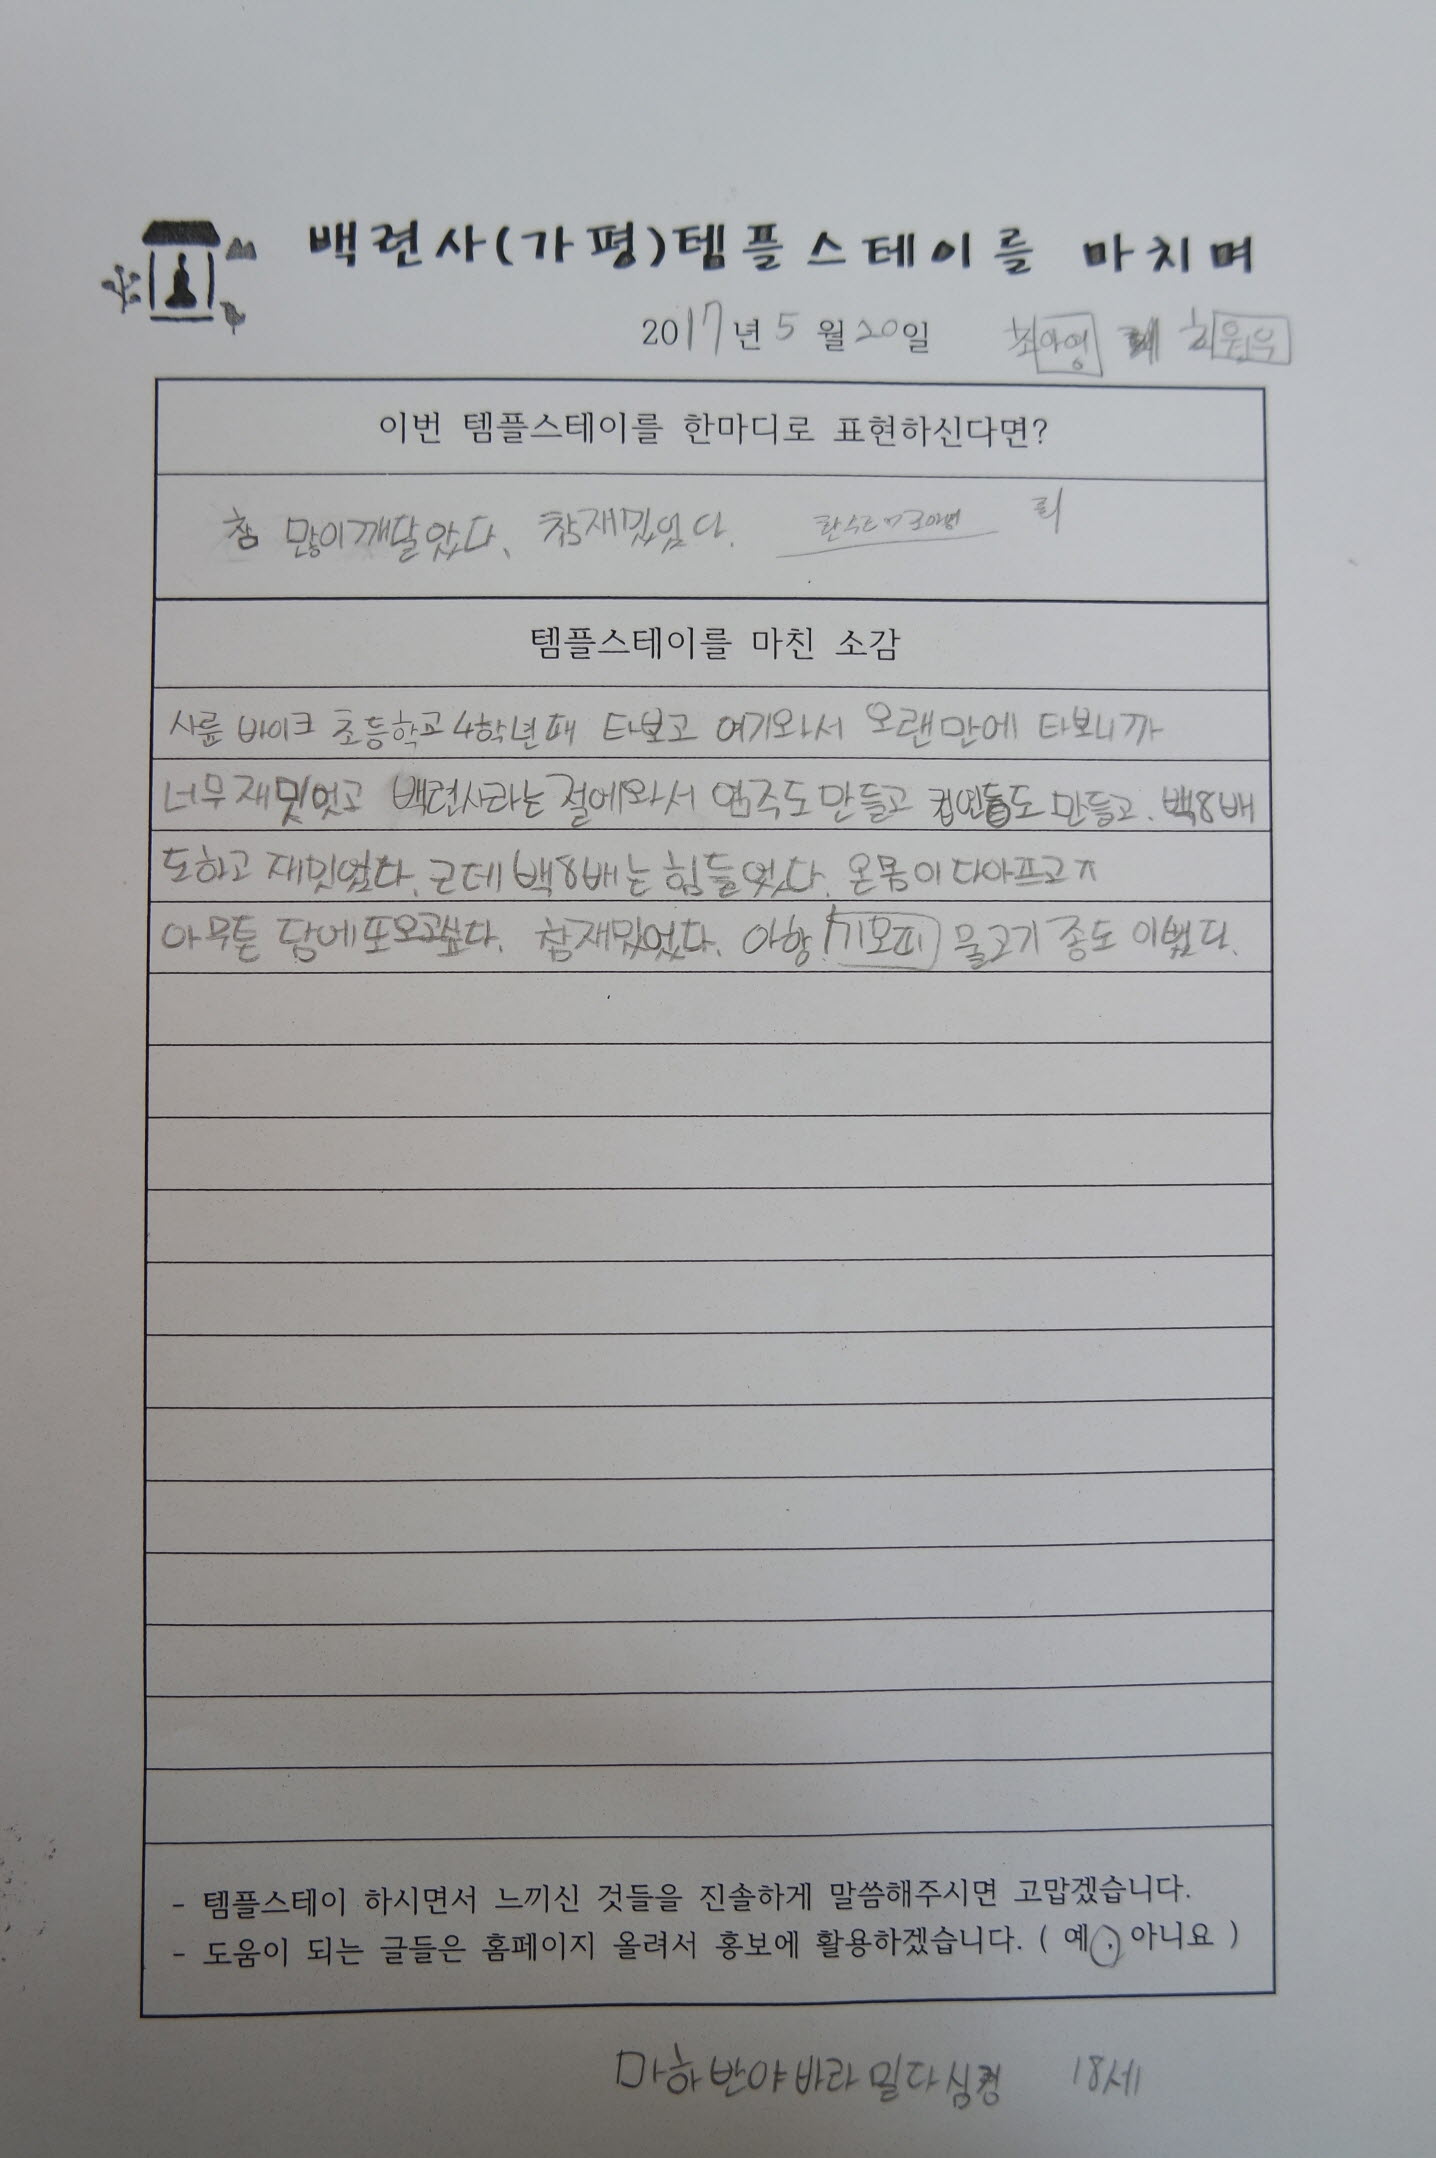 백련사(가평)템플스테이를 마치며
2017년 5월 20일 최아영 최원우
이번 템플스테이를 한마디로 표현하신다면?
참 많이깨달았다. 참재밌었다.
템플스테이를 마친 소감
사륜 바이크 초등학교 4학년때 타보고 여기와서 오랜만에 타보니까
너무재밌었고 백련사라는 절에와서 염주도만들고 컵연등도 만들고. 백8배
도하고 재밌었다. 근데 백8배는 힘들었다. 온몸이 다아프고ㅈ
아무튼 담에또오고싶다. 참재밌었다. 아항! 기모띠 물고기 종도 이뻤다.
- 템플스테이 하시면서 느끼신 것들을 진솔하게 말씀해주시면 고맙겠습니다.
- 도움이 되는 글들은 홈페이지 올려서 홍보에 활용하겠습니다. ( 예 . 아니요 )
마하반야바라밀다심경 18세